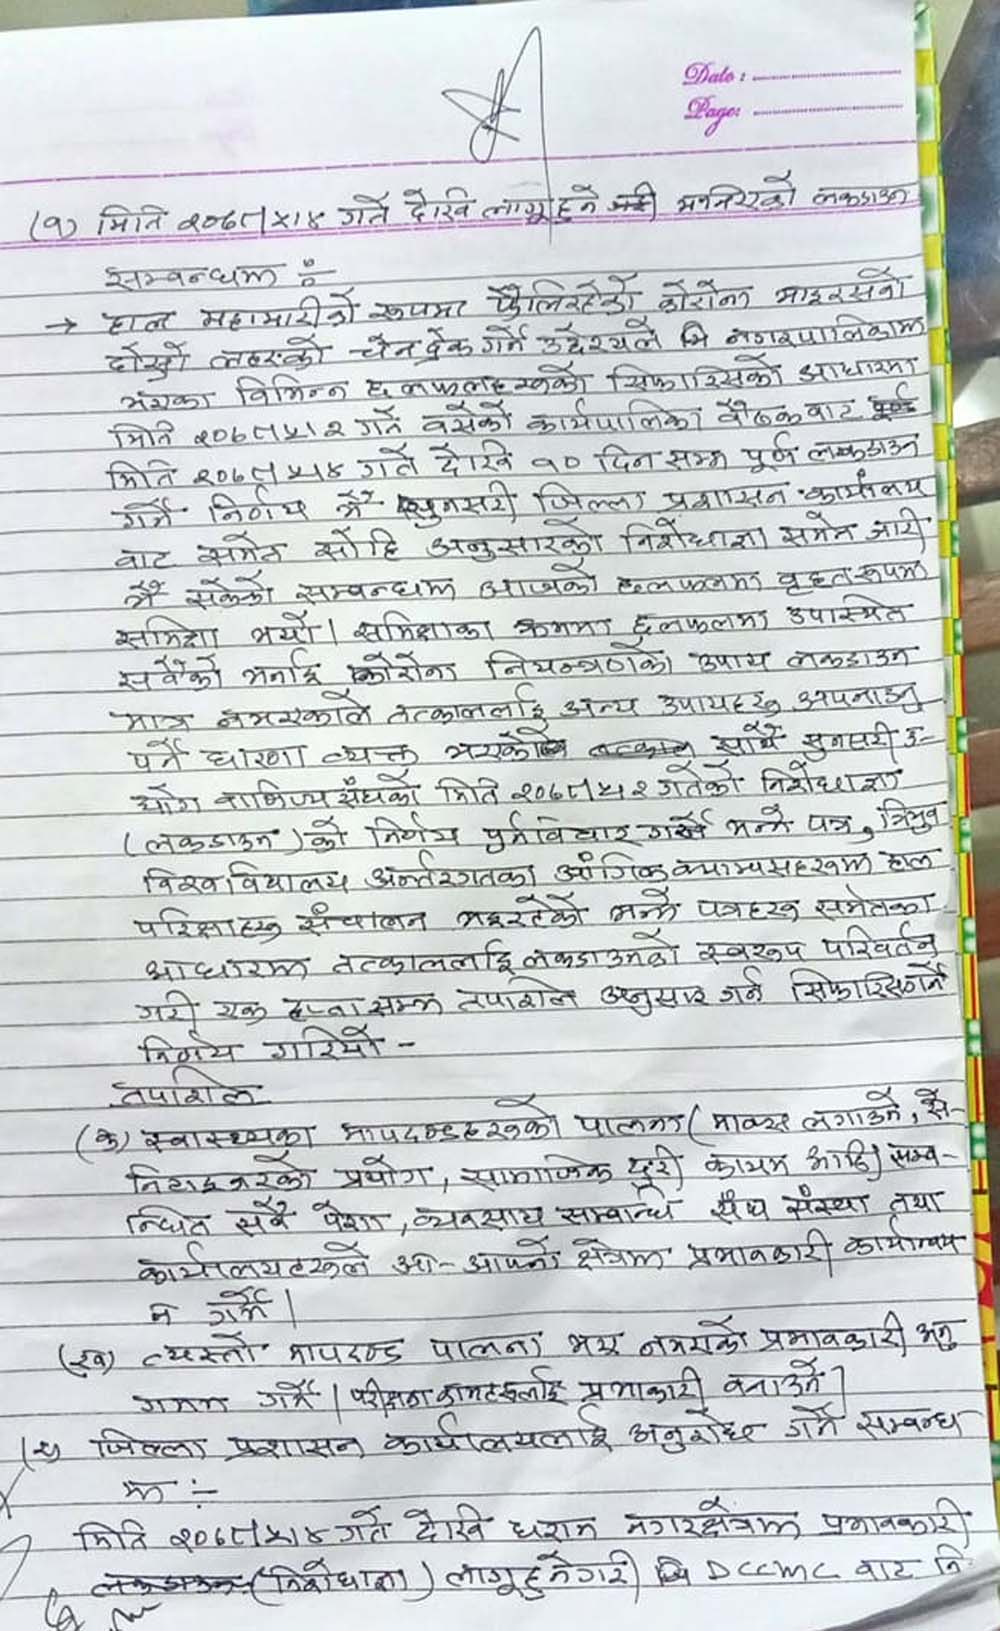 Date :
Page:
(१) मिति २०७८।५।१४ गते देखि लागू हुने गरी भनिएको लकडाउन
सम्बन्धमा :-
→ हाल महामारीको रूपमा फैलिरहेको कोरोना भाइरसको
दोस्रो लहरको चेन ब्रेक गर्ने उद्देश्यले नगरपालिकामा
भएका विभिन्न छलफलहरूको सिफारिसको आधारमा
मिति २०७८।५।१२ गते बसेको कार्यपालिका बैठकबाट
मिति २०७८।५।१४ गते देखि १० दिन सम्म पूर्ण लकडाउन
गर्ने निर्णय भै सुनसरी जिल्ला प्रशासन कार्यालय
बाट समेत सोहि अनुसारको निशेधाज्ञा समेत जारी
भै सकेको सम्बन्धमा आजको छलफलमा वृहतरूपमा
समिक्षा भयो। समिक्षाका क्रममा छलफलमा उपस्थित
सबैको भनाई कोरोना नियन्त्रणको उपाय लकडाउन
मात्र नभएकाले तत्काललाई अन्य उपायहरू अपनाउनु
पर्ने धारणा व्यक्त भएको साथै सुनसरी उ-
द्योग वाणिज्य संघको मिति २०७८।५।१२ गतेको निशेधाज्ञा
(लकडाउन) को निर्णय पुर्नविचार गर्न भन्ने पत्र, त्रिभुवन
विश्व विद्यालय अर्न्तरगतका आंगिक क्याम्पसहरूमा हाल
परिक्षाहरू संचालन भइरहेको भन्ने पत्रहरू समेतका
आधारमा तत्काललाई लकडाउनको स्वरूप परिवर्तन
गरी एक हप्ता सम्म तपशिल अनुसार गर्न सिफारिस गर्ने
निर्णय गरियो -
तपशिल
(क) स्वास्थ्यका मापदण्डहरूको पालना (मास्क लगाउने, से-
निटाइजरको प्रयोग, सामाजिक दूरी कायम आदि) सम्ब-
न्धित सबै पेशा, व्यवसाय सम्बन्धि संघ संस्था तथा
कार्यालयहरूले आ-आफ्नो क्षेत्रमा प्रभावकारी कार्यान्वय
न गर्ने।
(ख) त्यस्तो मापदण्ड पालना भए नभएको प्रभावकारी अनु
गमन गर्ने। परीक्षण कामहरूलाई प्रभाकारी बनाउने।
(२) जिल्ला प्रशासन कार्यालयलाई अनुरोध गर्ने सम्बन्ध
मा :-
मिति २०७८।५।१४ गते देखि धरान नगरक्षेत्रमा प्रभावकारी
लकडाउन (निशेधाज्ञा) लागू हुने गरी DCCMC बाट नि-